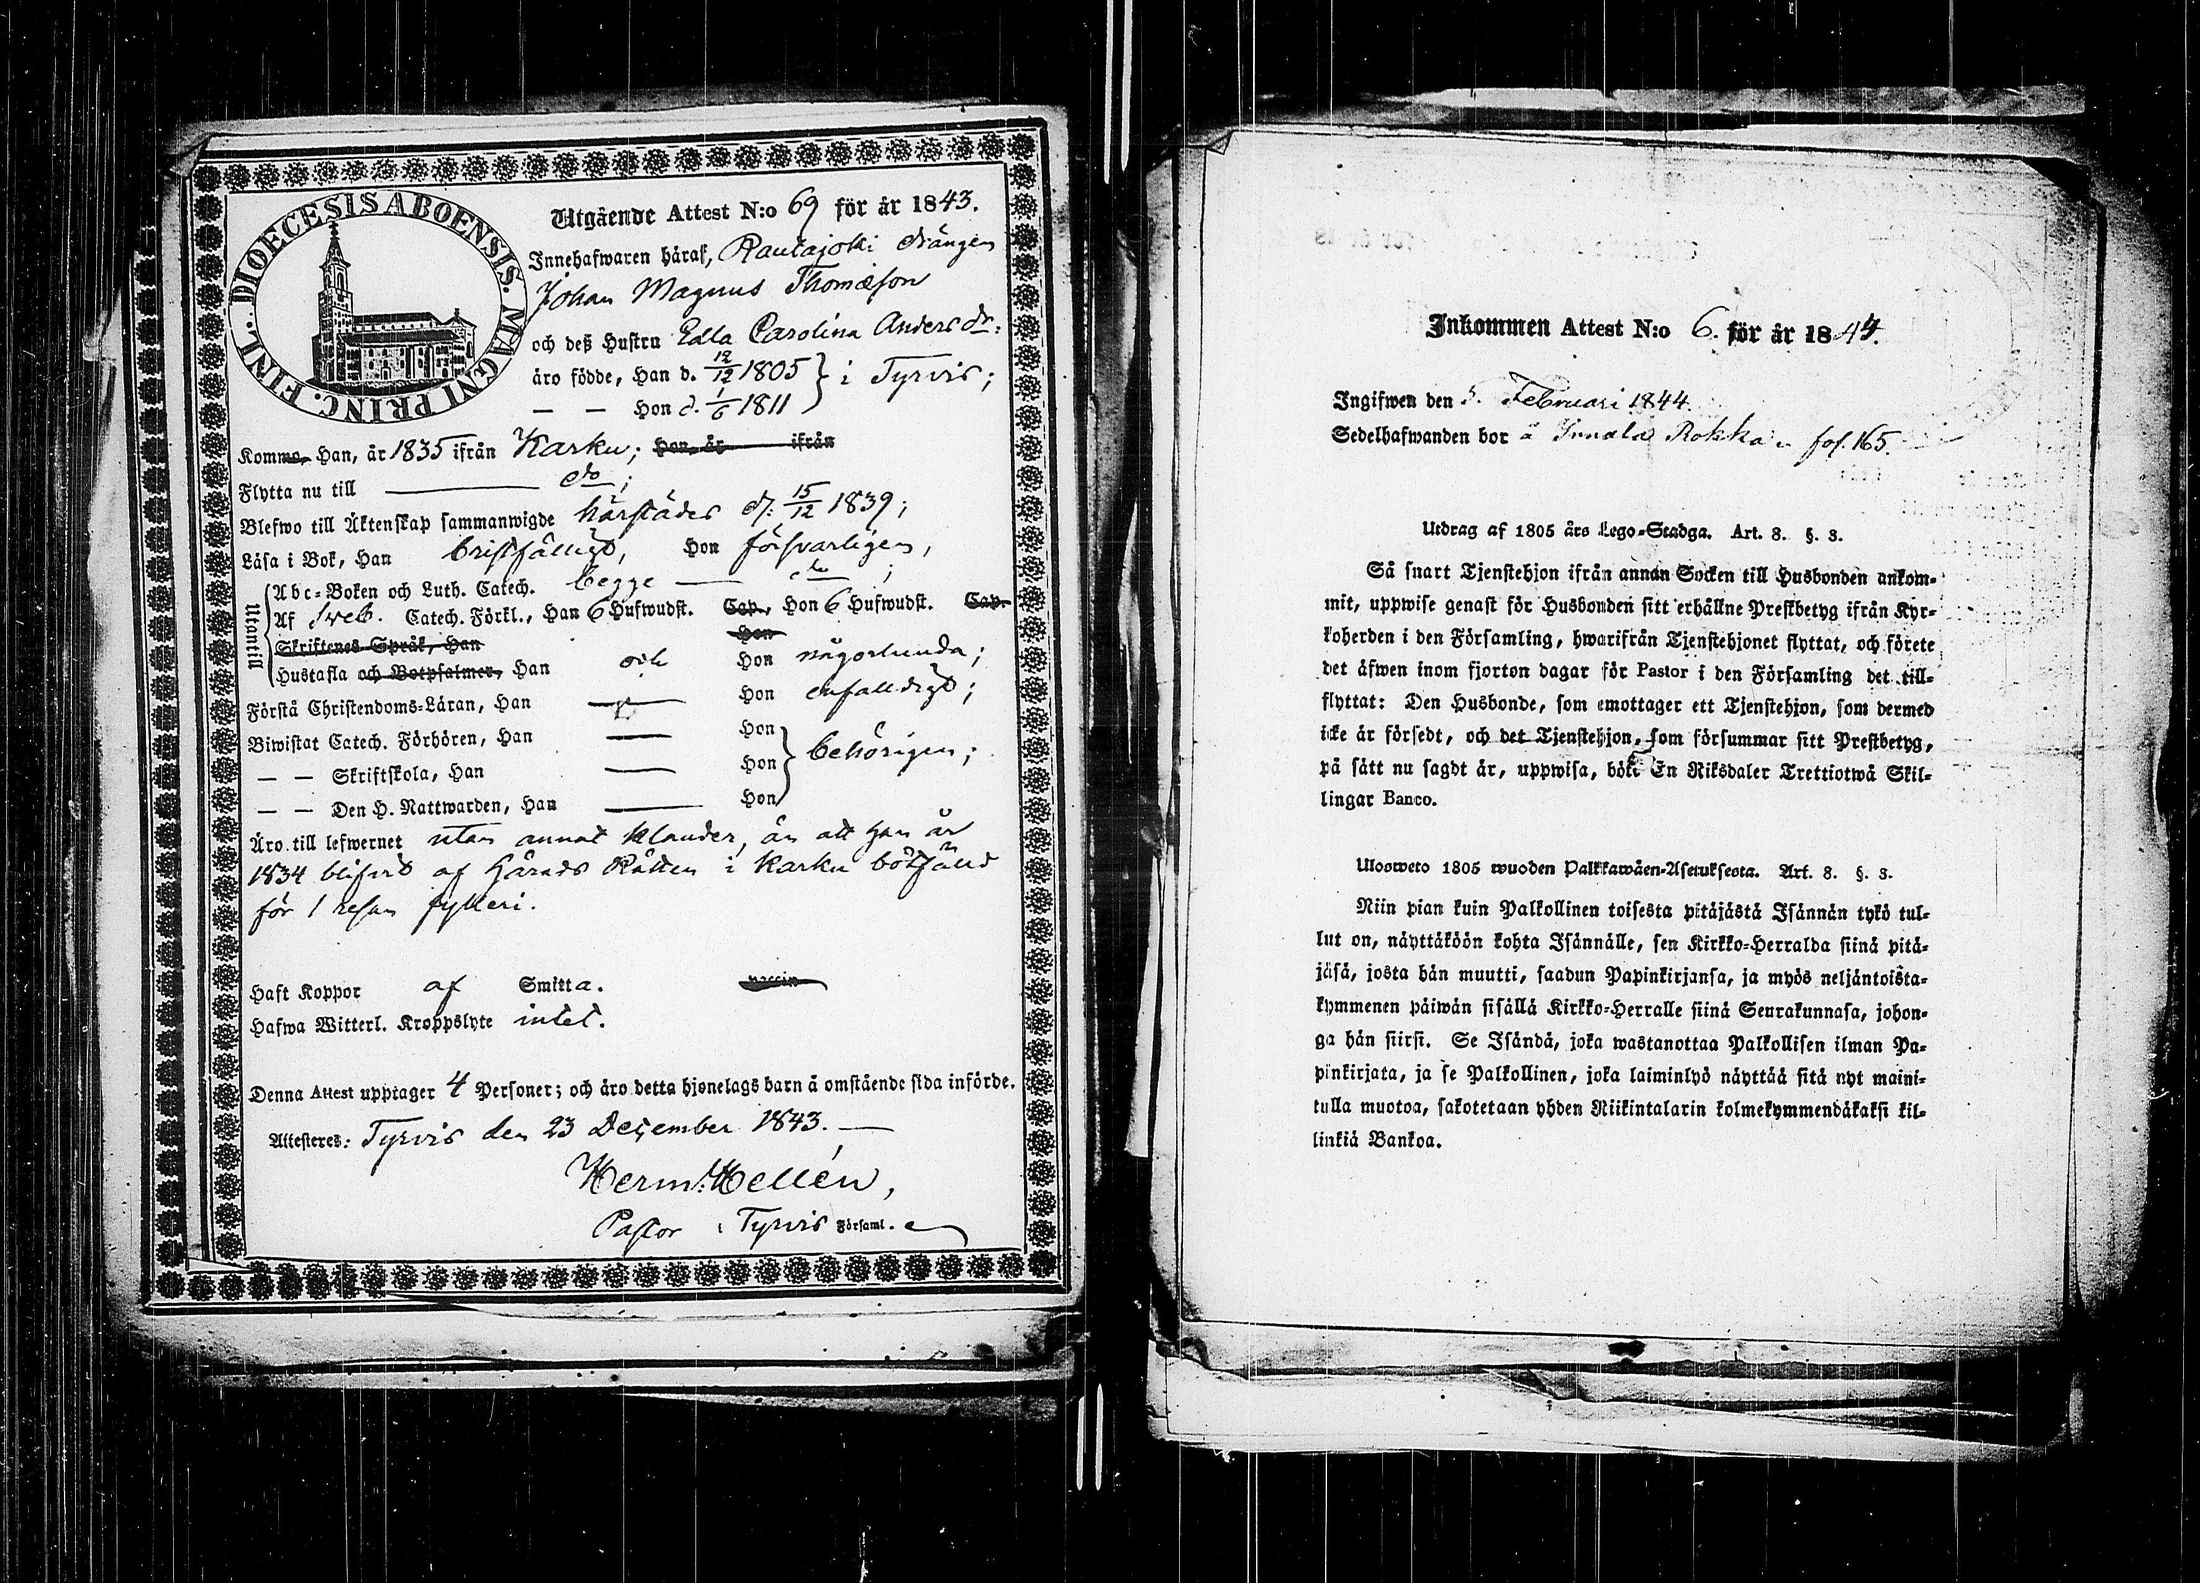 DIOECESIS ABOENSIS. MAGNI PRINC. FINL.
Utgående Attest N:o 69 för år 1843.
Innehafwaren häraf, Rautajoki drängen
Johan Magnus Thomæson
och deß Hustru Edla Carolina Anders dr:
äro födde, Han d. 12/12 1805 } i Tyrvis;
— — Hon d. 1/6 1811
Komme, Han, år 1835 ifrån Karku; Hon, år ifrån
Flytta nu till — do;
Blefwo till Äktenskap sammanwigde härstädes d: 15/12 1839;
Läsa i Bok, Han bristfälligt, Hon försvarligen,
Utantill
Abc-Boken och Luth. Catech. begge — do;
Af Sveb. Catech. Förkl., Han 6 Hufwudst. Cap., Hon 6 Hufwudst. Cap.
Skriftenes Språk, Han Hon
Hustafla och Botpsalmer, Han och Hon någorlunda;
Förstå Christendoms-Läran, Han — Hon enfalldigt;
Biwistat Catech. Förhören, Han — Hon
— — Skriftskola, Han — Hon } behörigen;
— — Den H. Nattwarden, Han — Hon
Äro till lefwernet utan annat klander, än att han år
1834 blifvit af Härads Rätten i Karku bötfälld
för 1 resan fylleri.
Haft Koppor af Smitta. vaccin
Hafwa Witterl. Kroppslyte intet.
Denna Attest upptager 4 Personer; och äro detta hjonelags barn å omstående sida införde.
Attesteres: Tyrvis den 23 December 1843. —
Herm: Hellén,
Pastor i Tyrvis Församl.
Inkommen Attest N:o 6. för år 1844.
Ingifwen den 5. Februari 1844.
Sedelhafwanden bor å Innala Rokka fol. 165.
Utdrag af 1805 års Lego-Stadga. Art. 8. §. 3.
Så snart Tjenstehjon ifrån annan Socken till Husbonden ankom-
mit, uppwise genast för Husbonden sitt erhållne Prestbetyg ifrån Kyr-
koherden i den Församling, hwarifrån Tjenstehjonet flyttat, och förete
det äfwen inom fjorton dagar för Pastor i den Församling det till-
flyttat: Den Husbonde, som emottager ett Tjenstehjon, som dermed
icke är försedt, och det Tjenstehjon, som försummar sitt Prestbetyg,
på sätt nu sagdt är, uppwisa, böte En Riksdaler Trettiotwå Skil-
lingar Banco.
Ulosweto 1805 wuoden Palkkawäen-Asetuksesta. Art. 8. §. 3.
Niin pian kuin Palkollinen toisesta pitäjästä Isännän tykö tul-
lut on, näyttäköön kohta Isännälle, sen Kirkko-Herralda siinä pitä-
jäsä, josta hän muutti, saadun Papinkirjansa, ja myös neljäntoista-
kymmenen päiwän sisällä Kirkko-Herralle siinä Seurakunnasa, johon-
ga hän siirsi. Se Isändä, joka wastanottaa Palkollisen ilman Pa-
pinkirjata, ja se Palkollinen, joka laiminlyö näyttää sitä nyt maini-
tulla muotoa, sakotetaan yhden Riikintalarin kolmekymmendäkaksi kil-
linkiä Bankoa.